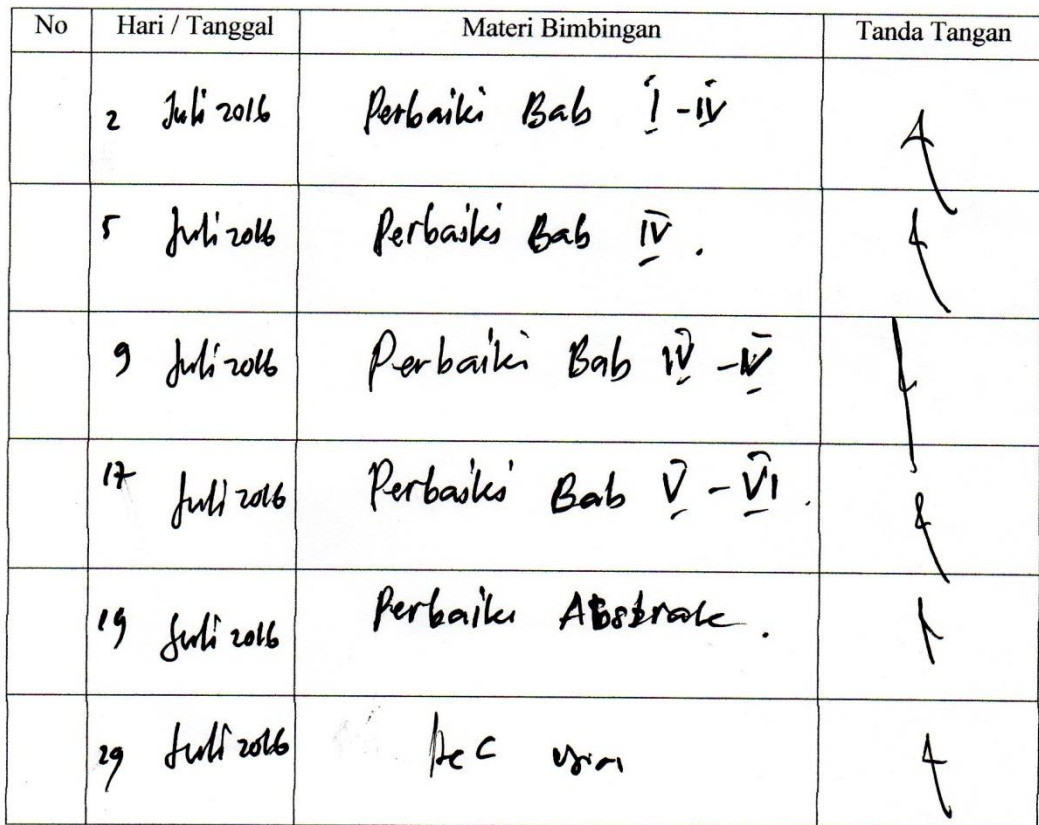 No Hari / Tanggal Materi Bimbingan Tanda Tangan
2 Juli 2016 Perbaiki Bab I - IV
5 Juli 2016 Perbaiki Bab IV .
9 Juli 2016 Perbaiki Bab IV - IV
17 Juli 2016 Perbaiki Bab V - VI .
19 Juli 2016 Perbaiki Abstrak .
29 Juli 2016 Acc